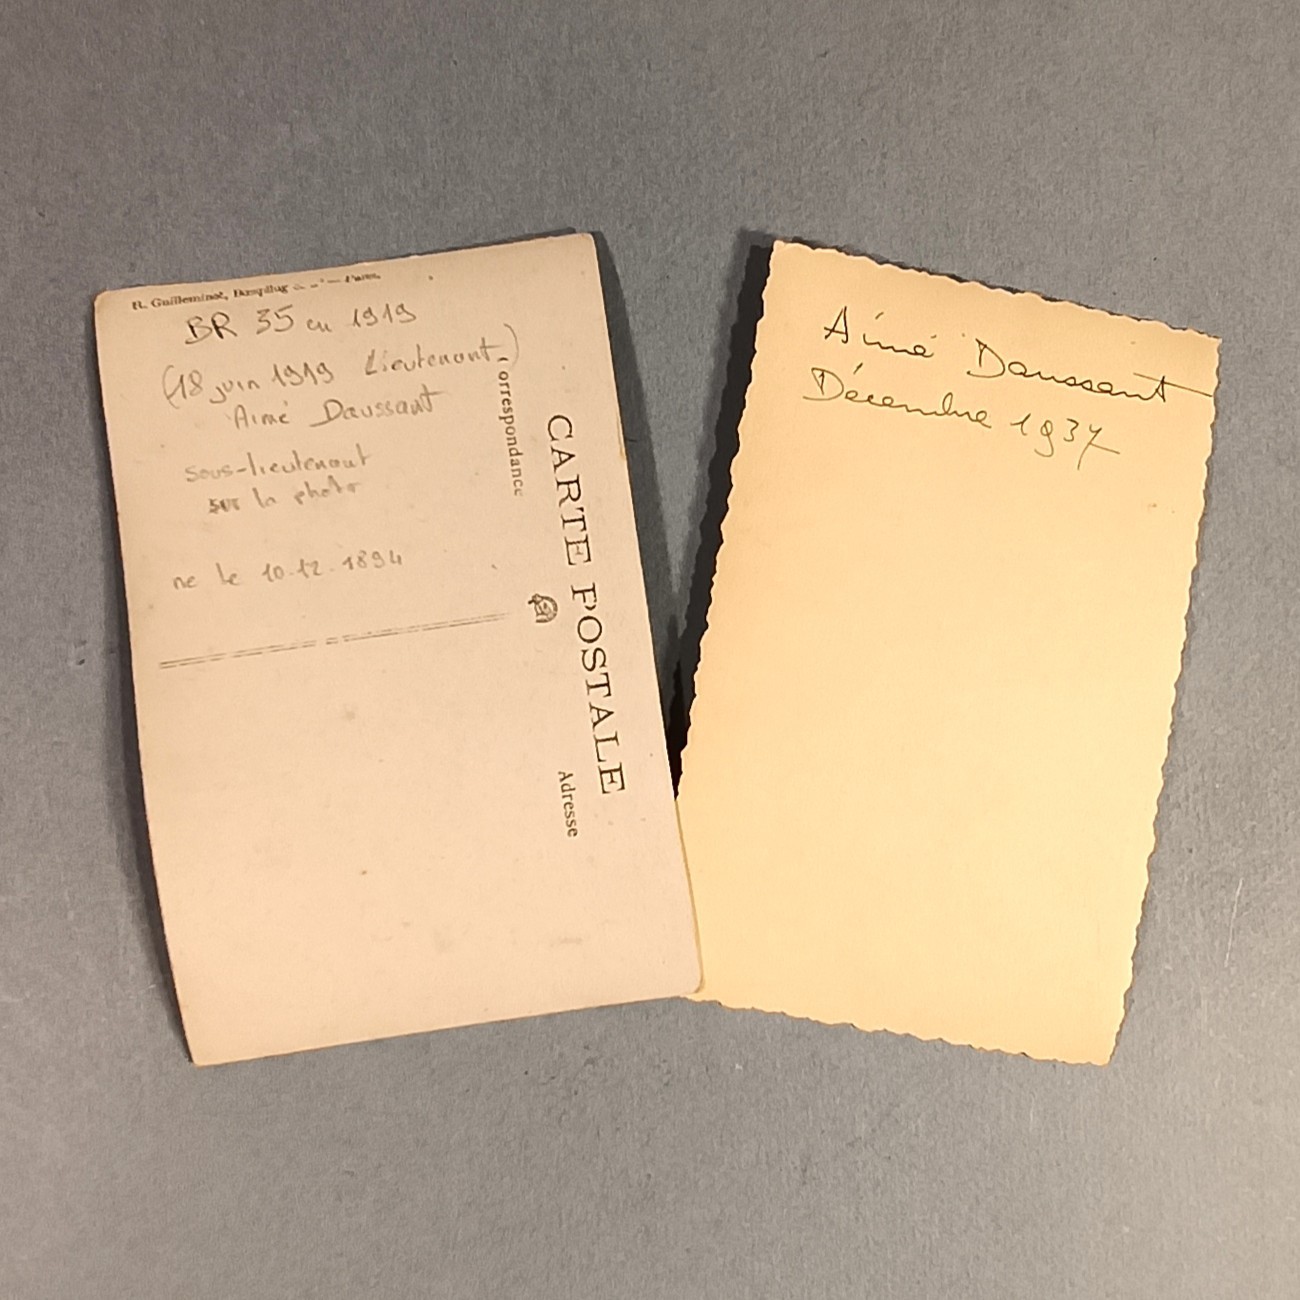 R. Guilleminot, Bœspflug
BR 35 en 1919
(18 juin 1919 Lieutenant)
Aimé Daussant
sous-lieutenant
sur la photo
ne le 10.12.1894
orrespondance
CARTE POSTALE
Adresse
Aimé Daussant
Décembre 1937